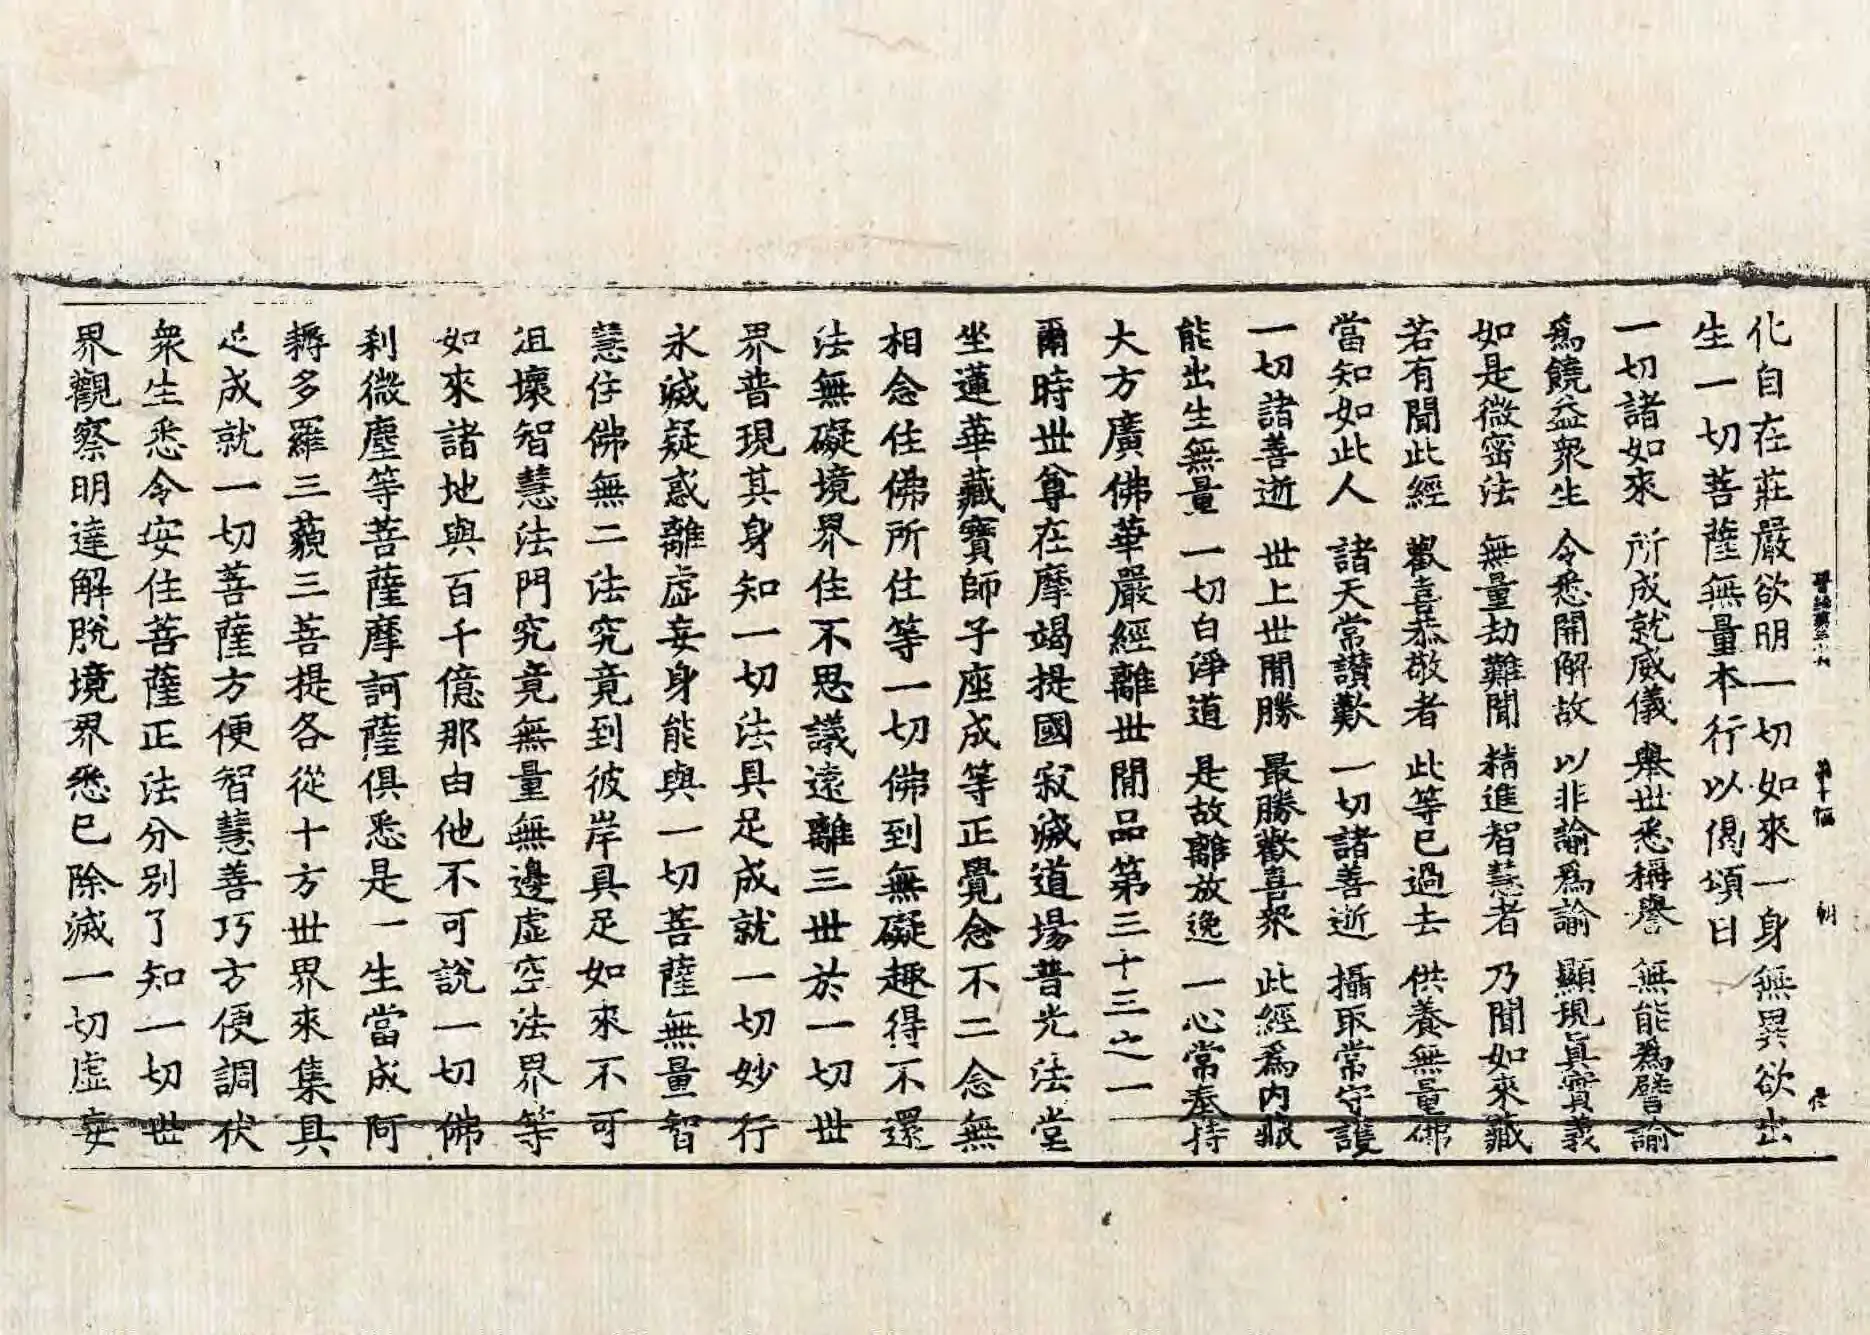 化自在莊嚴欲明一切如來一身無異欲出
生一切菩薩無量本行以偈頌曰
一切諸如來 所成就威儀 舉世悉稱譽 無能爲譬諭
爲饒益衆生 令悉開解故 以非諭爲諭 顯現眞實義
如是微密法 無量劫難聞 精進智慧者 乃聞如來藏
若有聞此經 歡喜恭敬者 此等已過去 供養無量佛
當知如此人 諸天常讃歎 一切諸善逝 攝取常守護
一切諸善逝 世上世間勝 最勝歡喜衆 此經爲內眼
能出生無量 一切白淨道 是故離放逸 一心常奉持
大方廣佛華嚴經離世間品第三十三之一
爾時世尊在摩竭提國寂滅道場普光法堂
坐蓮華藏寶師子座成等正覺念不二念無
相念住佛所住等一切佛到無礙趣得不還
法無礙境界住不思議遠離三世於一切世
界普現其身知一切法具足成就一切妙行
永滅疑惑離虛妄身能與一切菩薩無量智
慧住佛無二法究竟到彼岸具足如來不可
沮壞智慧法門究竟無量無邊虛空法界等
如來諸地與百千億那由他不可說一切佛
刹微塵等菩薩摩訶薩俱悉是一生當成阿
耨多羅三藐三菩提各從十方世界來集具
足成就一切菩薩方便智慧善巧方便調伏
衆生悉令安住菩薩正法分別了知一切世
界觀察明達解脫境界悉已除滅一切虛妄